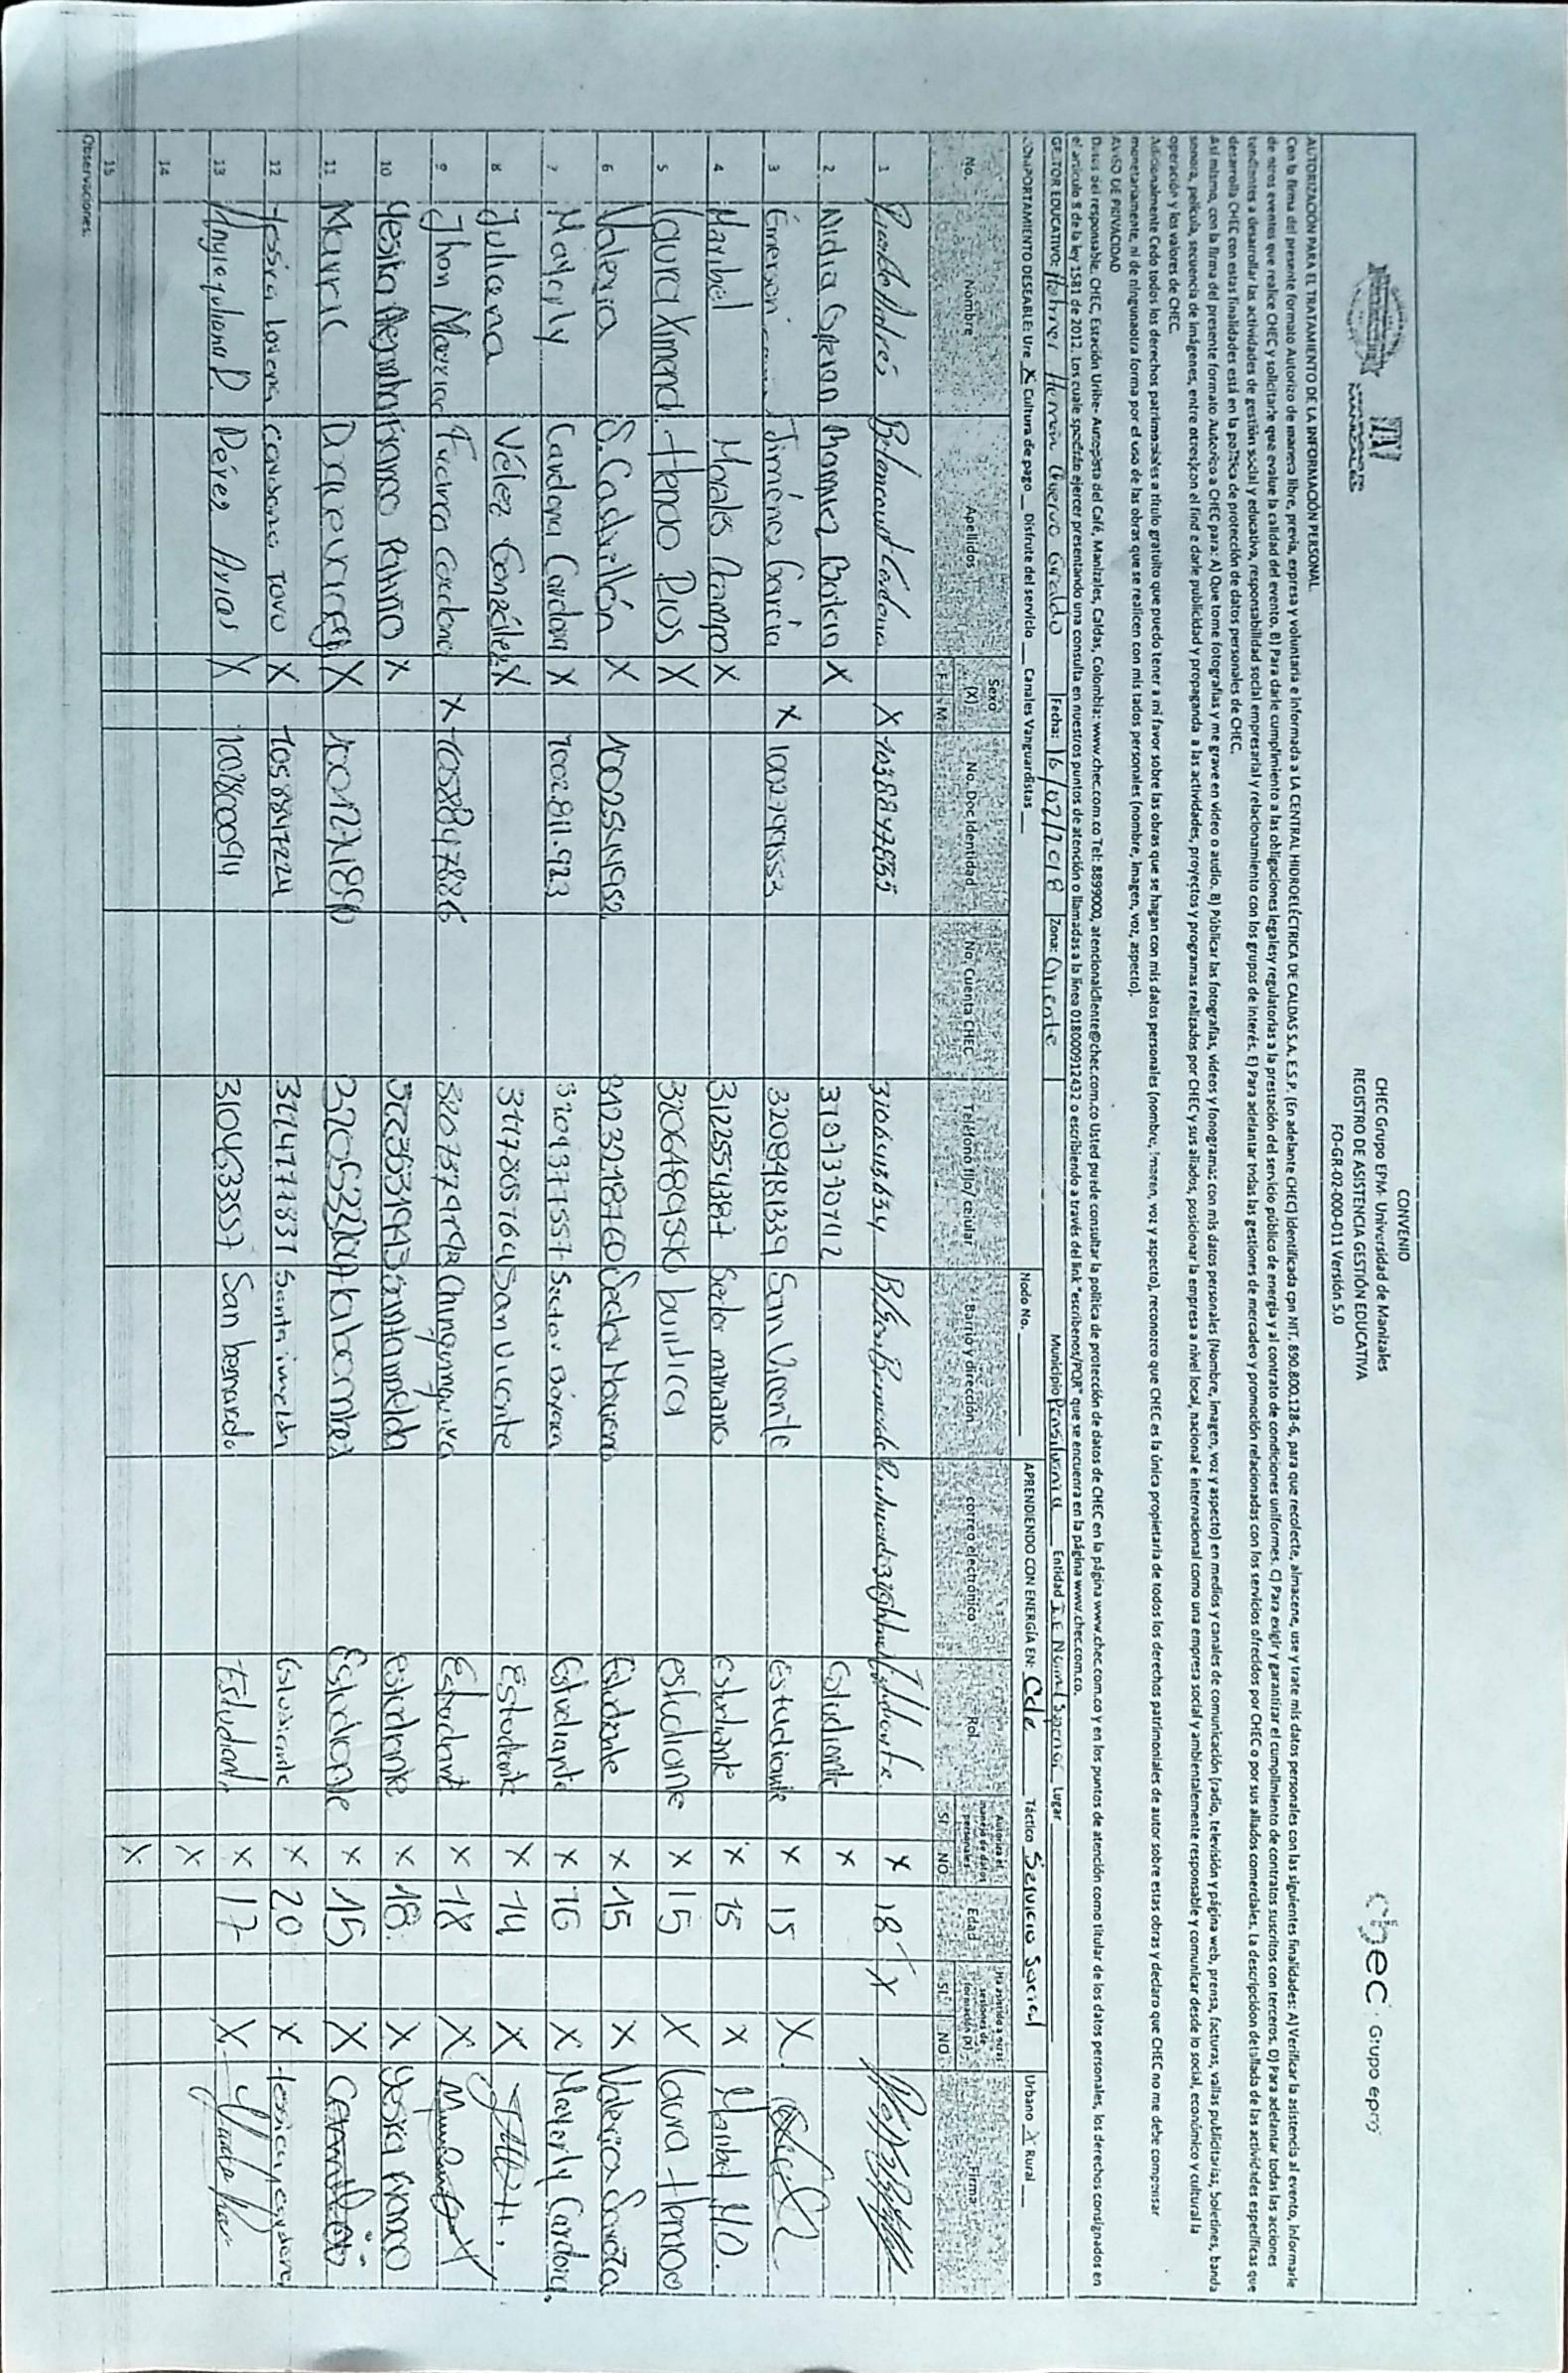 UNIVERSIDAD DE MANIZALES
CONVENIO
CHEC Grupo EPM- Universidad de Manizales
REGISTRO DE ASISTENCIA GESTIÓN EDUCATIVA
FO-GR-02-000-011 Versión 5.0
chec Grupo epm
AUTORIZACIÓN PARA EL TRATAMIENTO DE LA INFORMACIÓN PERSONAL.
Con la firma del presente formato Autorizo de manera libre, previa, expresa y voluntaria e informada a LA CENTRAL HIDROELÉCTRICA DE CALDAS S.A. E.S.P. (En adelante CHEC) identificada cpn NIT. 890.800.128-6, para que recolecte, almacene, use y trate mis datos personales con las siguientes finalidades: A) Verificar la asistencia al evento, informarle
de otros eventos que realice CHEC y solicitarle que evalue la calidad del evento. B) Para darle cumplimiento a las obligaciones legalesy regulatorias a la prestación del servicio público de energía y al contrato de condiciones uniformes. C) Para exigir y garantizar el cumplimiento de contratos suscritos con terceros. D) Para adelantar todas las acciones
tendientes a desarrollar las actividades de gestión social y educativa, responsabilidad social empresarial y relacionamiento con los grupos de interés. E) Para adelantar todas las gestiones de mercadeo y promoción relacionadas con los servicios ofrecidos por CHEC o por sus aliados comerciales. La descripción detallada de las actividades específicas que
desarrolla CHEC con estas finalidades está en la política de protección de datos personales de CHEC.
Así mismo, con la firma del presente formato Autorico a CHEC para: A) Que tome fotografías y me grave en video o audio. B) Públicar las fotografías, vídeos y fonogramas con mis datos personales (Nombre, imagen, voz y aspecto) en medios y canales de comunicación (radio, televisión y página web, prensa, facturas, vallas publicitarias, boletines, banda
sonora, película, secuencia de imágenes, entre otros)con el find e darle publicidad y propaganda a las actividades, proyectos y programas realizados por CHEC y sus aliados, posicionar la empresa a nivel local, nacional e internacional como una empresa social y ambientalemente responsable y comunicar desde lo social, económico y cultural la
operación y los valores de CHEC.
Adicionalmente Cedo todos los derechos patrimoniales a título gratuito que puedo tener a mi favor sobre las obras que se hagan con mis datos personales (nombre, imagen, voz y aspecto), reconozco que CHEC es la única propietaria de todos los derechos patrimoniales de autor sobre estas obras y declaro que CHEC no me debe compensar
monetariamente, ni de ningunaotra forma por el uso de las obras que se realicen con mis tados personales (nombre, imagen, voz, aspecto).
AVISO DE PRIVACIDAD
Datos del responsable. CHEC, Estación Uribe- Autopista del Café, Manizales, Caldas, Colombia: www.chec.com.co Tel: 8899000, atencionalcliente@chec.com.co Usted puede consultar la política de protección de datos de CHEC en la página www.chec.com.co y en los puntos de atención como titular de los datos personales, los derechos consignados en
el artículo 8 de la ley 1581 de 2012. Los cuale spodrán ejercer presentando una consulta en nuestros puntos de atención o llamadas a la línea 018000912432 o escribiendo a través del link "escribenos/PQR" que se encuenra en la página www.chec.com.co.
GESTOR EDUCATIVO: Hernán Cuervo Giraldo Fecha: 16/02/2018 Zona: Oriente Municipio Pensilvania Entidad I E Normal Superior Lugar
COMPORTAMIENTO DESEABLE: Ure X Cultura de pago __ Disfrute del servicio __ Canales Vanguardistas __ Nodo No. ____ APRENDIENDO CON ENERGÍA EN: Cde Táctico Servicio Social Urbano X Rural __
No. Nombre Apellidos Sexo (X) F M No. Doc Identidad No. Cuenta CHEC Teléfono fijo/celular Barrio y dirección correo electrónico Rol Autoriza el manejo de datos personales SI NO Edad Ha asistido a otras sesiones de formación (X) SI NO Firma
1 Ricardo Andrés Betancourt Cardona X 1058847855 3106413634 Estudiante X 18 X
2 Nidia X 3107390712 estudiante X
3 Émerson Jiménez García X 1002799553 3209481339 San Vicente estudiante X 15 X
4 Maribel Morales Ocampo X 3122554387 Sector mariano estudiante X 15 X Maribel M.O.
5 Laura Ximena Henao Rios X 3206489456 estudiante X 15 X Laura Henao
6 Valeria S. Castrillón X 1002544950 3123218760 Sector Estudiante X 15 X Valeria
7 Mayerly Cardona Cardona X 1002811.923 3209377557 Sector Estudiante X 16 X Mayerly Cardona
8 Juliana Vélez González X 3117885764 San Vicente Estudiante X 14 X
9 Jhon Cardona X 1058847886 Estudiante X 18 X
10 Yesika Alejandra Franco Patiño X Santa Imelda estudiante X 18 X Yesica Franco
11 X Estudiante X 15 X
12 Jessica Lorena X 1058847224 Santa imelda Estudiante X 20 X
13 Angie Juliana P. Pérez Arias X 1002800094 3104633557 San bernardo Estudiante X 17 X
14 X
15 X
Observaciones: